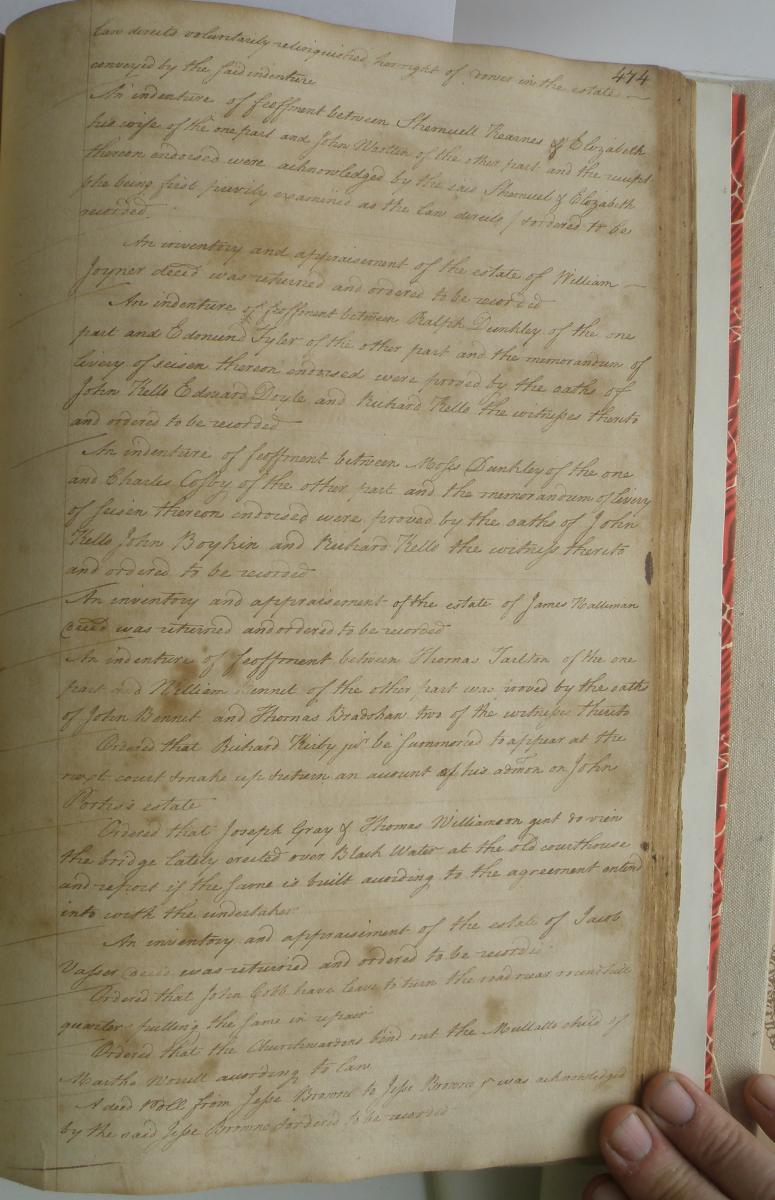 474
law directs voluntarily relinquished her right of dower in the estate
conveyed by the said indenture
An indenture of feoffment between Shemuell Kearnes & Elizabeth
his wife of the one part and John of the other part and the receipt
thereon endorsed were acknowledged by the said Shemuel & Elizabeth
she being first privily examined as the law directs & ordered to be
recorded
An inventory and appraisement of the estate of William
Joyner deced was returned and ordered to be recorded
An indenture of feoffment between Ralph Dunkley of the one
part and Edmund Tyler of the other part and the memorandum of
livery of seisen thereon endorsed were proved by the oaths of
John Kello Edward Doyle and Richard Kello the witnesses thereto
and ordered to be recorded
An indenture of feoffment between Moss Dunkley of the one
and Charles Cosby of the other part and the memorandum of livery
of seisen thereon endorsed were proved by the oaths of John
Kello John Boykin and Richard Kello the witness thereto
and ordered to be recorded
An inventory and appraisement of the estate of James Halleman
deced was returned and ordered to be recorded
An indenture of feoffment between Thomas Tarlton of the one
part and William Bennet of the other part was proved by the oaths
of John Bennet and Thomas Bradshaw two of the witnesses thereto
Ordered that Richard Kirby junr be summoned to appear at the
next court & make up & return an account of his admon on John
Portis's estate
Ordered that Joseph Gray & Thomas Williamson gent do view
the bridge lately erected over Black Water at the old courthouse
and report if the same is built according to the agreement enterd
into with the undertaker
An inventory and appraisement of the estate of Jacob
Vasser deced was returned and ordered to be recorded
Ordered that John Cobb have leave to turn the road near round hill
quarter putting the same in repair
Ordered that the Churchwardens bind out the Mullatto child of
Martha according to law
A deed Poll from Jesse Browne to Jesse Browne was acknowledged
by the said Jesse Browne & ordered to be recorded